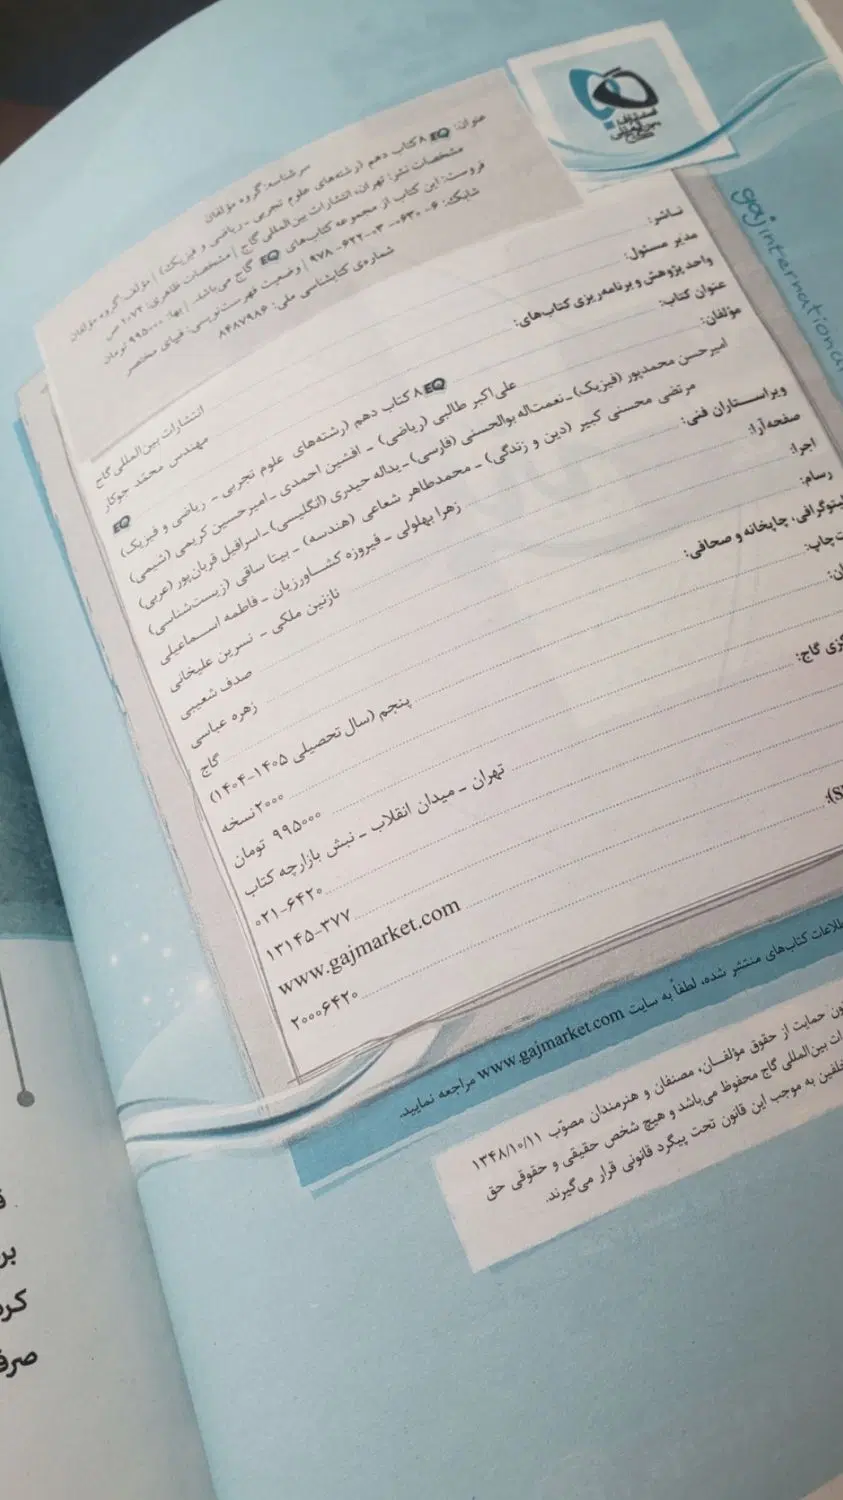 gajinternational
سرشناسه: گروه مؤلفان
عنوان: EQ ۸ کتاب دهم (رشته‌های علوم تجربی - ریاضی و فیزیک) | مؤلف: گروه مؤلفان
مشخصات نشر: تهران، انتشارات بین‌المللی گاج | مشخصات ظاهری: ۱۰۷۲ ص
فروست: این کتاب از مجموعه کتاب‌های EQ گاج می‌باشد. | بها: ۹۹۵۰۰۰ تومان
شابک: ۶-۰۶۳۰-۰۳-۶۲۲-۹۷۸ | وضعیت فهرست‌نویسی: فیپای مختصر
شماره‌ی کتابشناسی ملی: ۸۴۸۷۹۸۶
ناشر: انتشارات بین‌المللی گاج
مدیر مسئول: مهندس محمّد جوکار
واحد پژوهش و برنامه‌ریزی کتاب‌های: EQ
عنوان کتاب: EQ ۸ کتاب دهم (رشته‌های علوم تجربی - ریاضی و فیزیک)
مؤلفان: علی‌اکبر طالبی (ریاضی) - افشین احمدی - امیرحسین کریمی (شیمی)
امیرحسن محمدپور (فیزیک) - نعمت‌اله بوالحسنی (فارسی) - یداله حیدری (انگلیسی) - اسرافیل قربان‌پور (عربی)
مرتضی محسنی کبیر (دین و زندگی) - محمدطاهر شعاعی (هندسه) - بیتا ساقی (زیست‌شناسی)
ویراستاران فنی: زهرا بهلولی - فیروزه کشاورزیان - فاطمه اسماعیلی
صفحه‌آرا: نازنین ملکی - نسرین علیخانی
اجرا: صدف شعیبی
رسام: زهره عباسی
لیتوگرافی، چاپخانه و صحافی: گاج
ت چاپ: پنجم (سال تحصیلی ۱۴۰۵-۱۴۰۴)
ان: ۲۰۰۰ نسخه
۹۹۵۰۰۰ تومان
کزی گاج: تهران - میدان انقلاب - نبش بازارچه کتاب
۰۲۱-۶۴۲۰
۱۳۱۴۵-۳۷۷
www.gajmarket.com
۲۰۰۰۶۴۲۰
طلاعات کتاب‌های منتشر شده، لطفاً به سایت www.gajmarket.com مراجعه نمایید.
ون حمایت از حقوق مؤلفان، مصنفان و هنرمندان مصوّب ۱۳۴۸/۱۰/۱۱
رات بین‌المللی گاج محفوظ می‌باشد و هیچ شخص حقیقی و حقوقی حق
خلفین به موجب این قانون تحت پیگرد قانونی قرار می‌گیرند.
بر
کرد
صرف